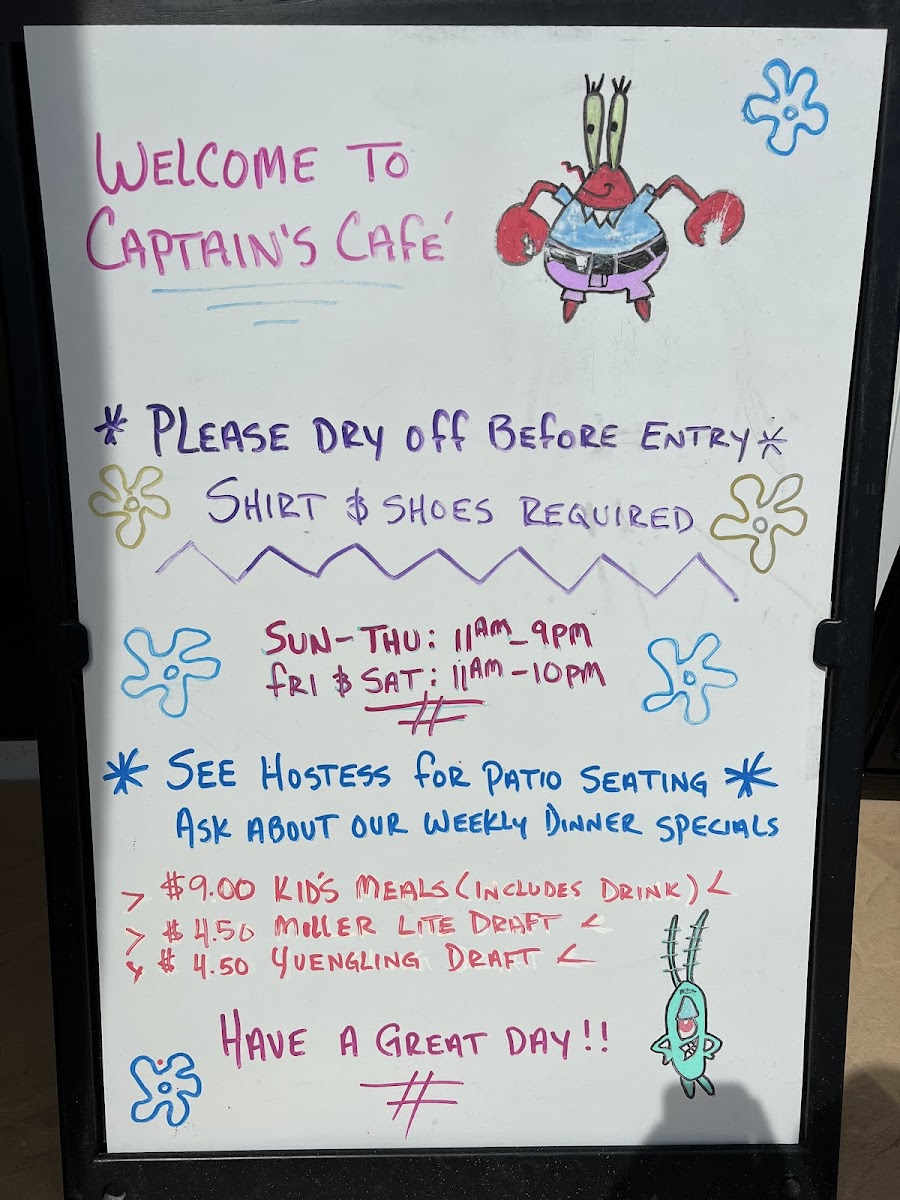 WELCOME TO
CAPTAIN'S CAFÉ
* PLEASE DRY OFF BEFORE ENTRY *
SHIRT & SHOES REQUIRED
SUN-THU: 11AM-9PM
FRI & SAT: 11AM-10PM
* SEE HOSTESS FOR PATIO SEATING *
ASK ABOUT OUR WEEKLY DINNER SPECIALS
> $9.00 KID'S MEALS (INCLUDES DRINK) <
> $4.50 MILLER LITE DRAFT <
> $4.50 YUENGLING DRAFT <
HAVE A GREAT DAY!!